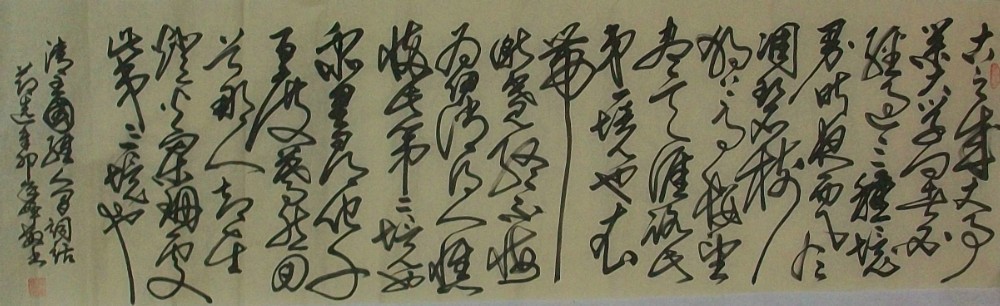 古之成大事
業大學問者必
經過三種境
界昨夜西風
凋碧樹
獨上高樓望
盡天涯路此
第一境也衣
帶
漸寬終不悔
為伊消得人憔
悴此第二境也
眾里尋他千
百度驀然回
首那人却在
燈火闌珊處
此第三境也
清王國維人間詞話
節選辛卯書